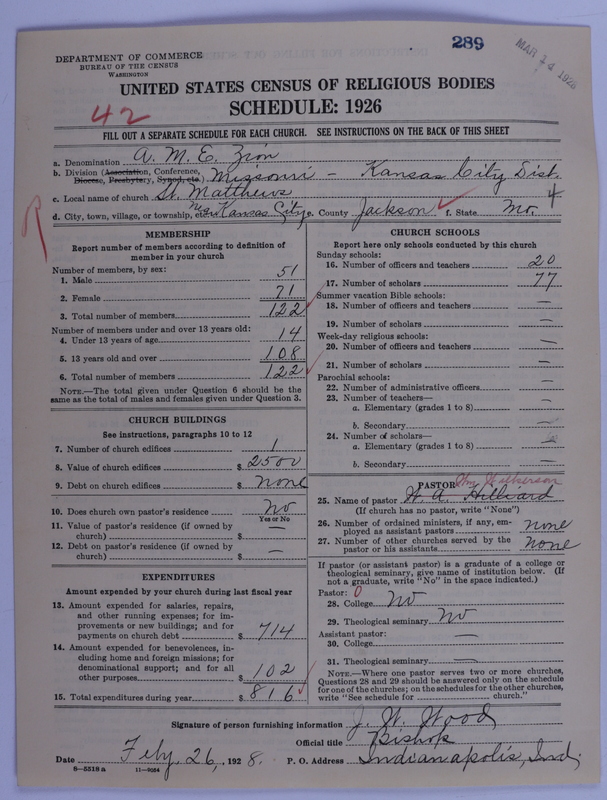 289
MAR 14 1928
DEPARTMENT OF COMMERCE
BUREAU OF THE CENSUS
WASHINGTON
UNITED STATES CENSUS OF RELIGIOUS BODIES
SCHEDULE: 1926
42
FILL OUT A SEPARATE SCHEDULE FOR EACH CHURCH. SEE INSTRUCTIONS ON THE BACK OF THIS SHEET
a. Denomination A. M. E. Zion
b. Division (Association, Conference, Diocese, Presbytery, Synod, etc.) Missouri - Kansas City Dist.
c. Local name of church St. Matthews
d. City, town, village, or township, Kansas City e. County Jackson f. State Mo. 4
R
MEMBERSHIP
Report number of members according to definition of
member in your church
Number of members, by sex:
1. Male 51
2. Female 71
3. Total number of members 122
Number of members under and over 13 years old:
4. Under 13 years of age 14
5. 13 years old and over 108
6. Total number of members 122
NOTE.—The total given under Question 6 should be the
same as the total of males and females given under Question 3.
CHURCH BUILDINGS
See instructions, paragraphs 10 to 12
7. Number of church edifices 1
8. Value of church edifices $ 2500
9. Debt on church edifices $ none
10. Does church own pastor's residence No
Yes or No
11. Value of pastor's residence (if owned by
church) $ —
12. Debt on pastor's residence (if owned by
church) $ —
EXPENDITURES
Amount expended by your church during last fiscal year
13. Amount expended for salaries, repairs,
and other running expenses; for im-
provements or new buildings; and for
payments on church debt $ 714
14. Amount expended for benevolences, in-
cluding home and foreign missions; for
denominational support; and for all
other purposes $ 102
15. Total expenditures during year $ 816
CHURCH SCHOOLS
Report here only schools conducted by this church
Sunday schools:
16. Number of officers and teachers 20
17. Number of scholars 77
Summer vacation Bible schools:
18. Number of officers and teachers —
19. Number of scholars —
Week-day religious schools:
20. Number of officers and teachers —
21. Number of scholars —
Parochial schools:
22. Number of administrative officers —
23. Number of teachers—
a. Elementary (grades 1 to 8) —
b. Secondary —
24. Number of scholars—
a. Elementary (grades 1 to 8)
b. Secondary —
PASTOR Wm Wilkerson
25. Name of pastor W. A. Hilliard
(If church has no pastor, write "None")
26. Number of ordained ministers, if any, em-
ployed as assistant pastors none
27. Number of other churches served by the
pastor or his assistants none
If pastor (or assistant pastor) is a graduate of a college or
theological seminary, give name of institution below. (If
not a graduate, write "No" in the space indicated.)
Pastor: 0
28. College No
29. Theological seminary No
Assistant pastor:
30. College —
31. Theological seminary —
NOTE.—Where one pastor serves two or more churches,
Questions 28 and 29 should be answered only on the schedule
for one of the churches; on the schedules for the other churches,
write "See schedule for church."
Signature of person furnishing information J. W. Wood
Official title Bishop
Date Feby. 26, 1928. P. O. Address Indianapolis, Ind.
8—5518 a 11—9024